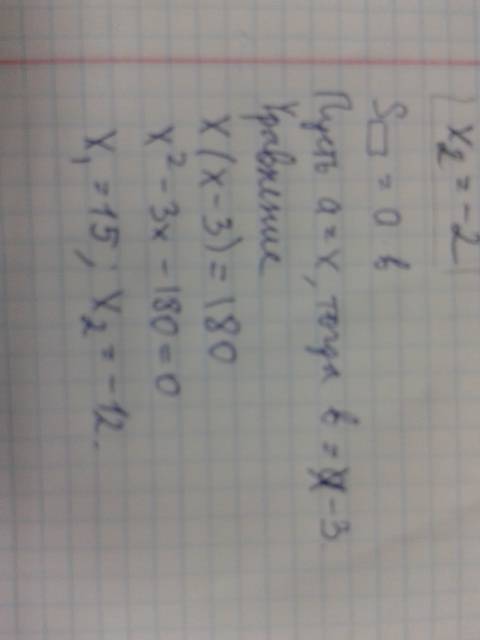 x₂ = -2
S□ = a b
Пусть a = x, тогда b = x - 3
Уравнение
x(x-3) = 180
x² - 3x - 180 = 0
x₁ = 15; x₂ = -12.